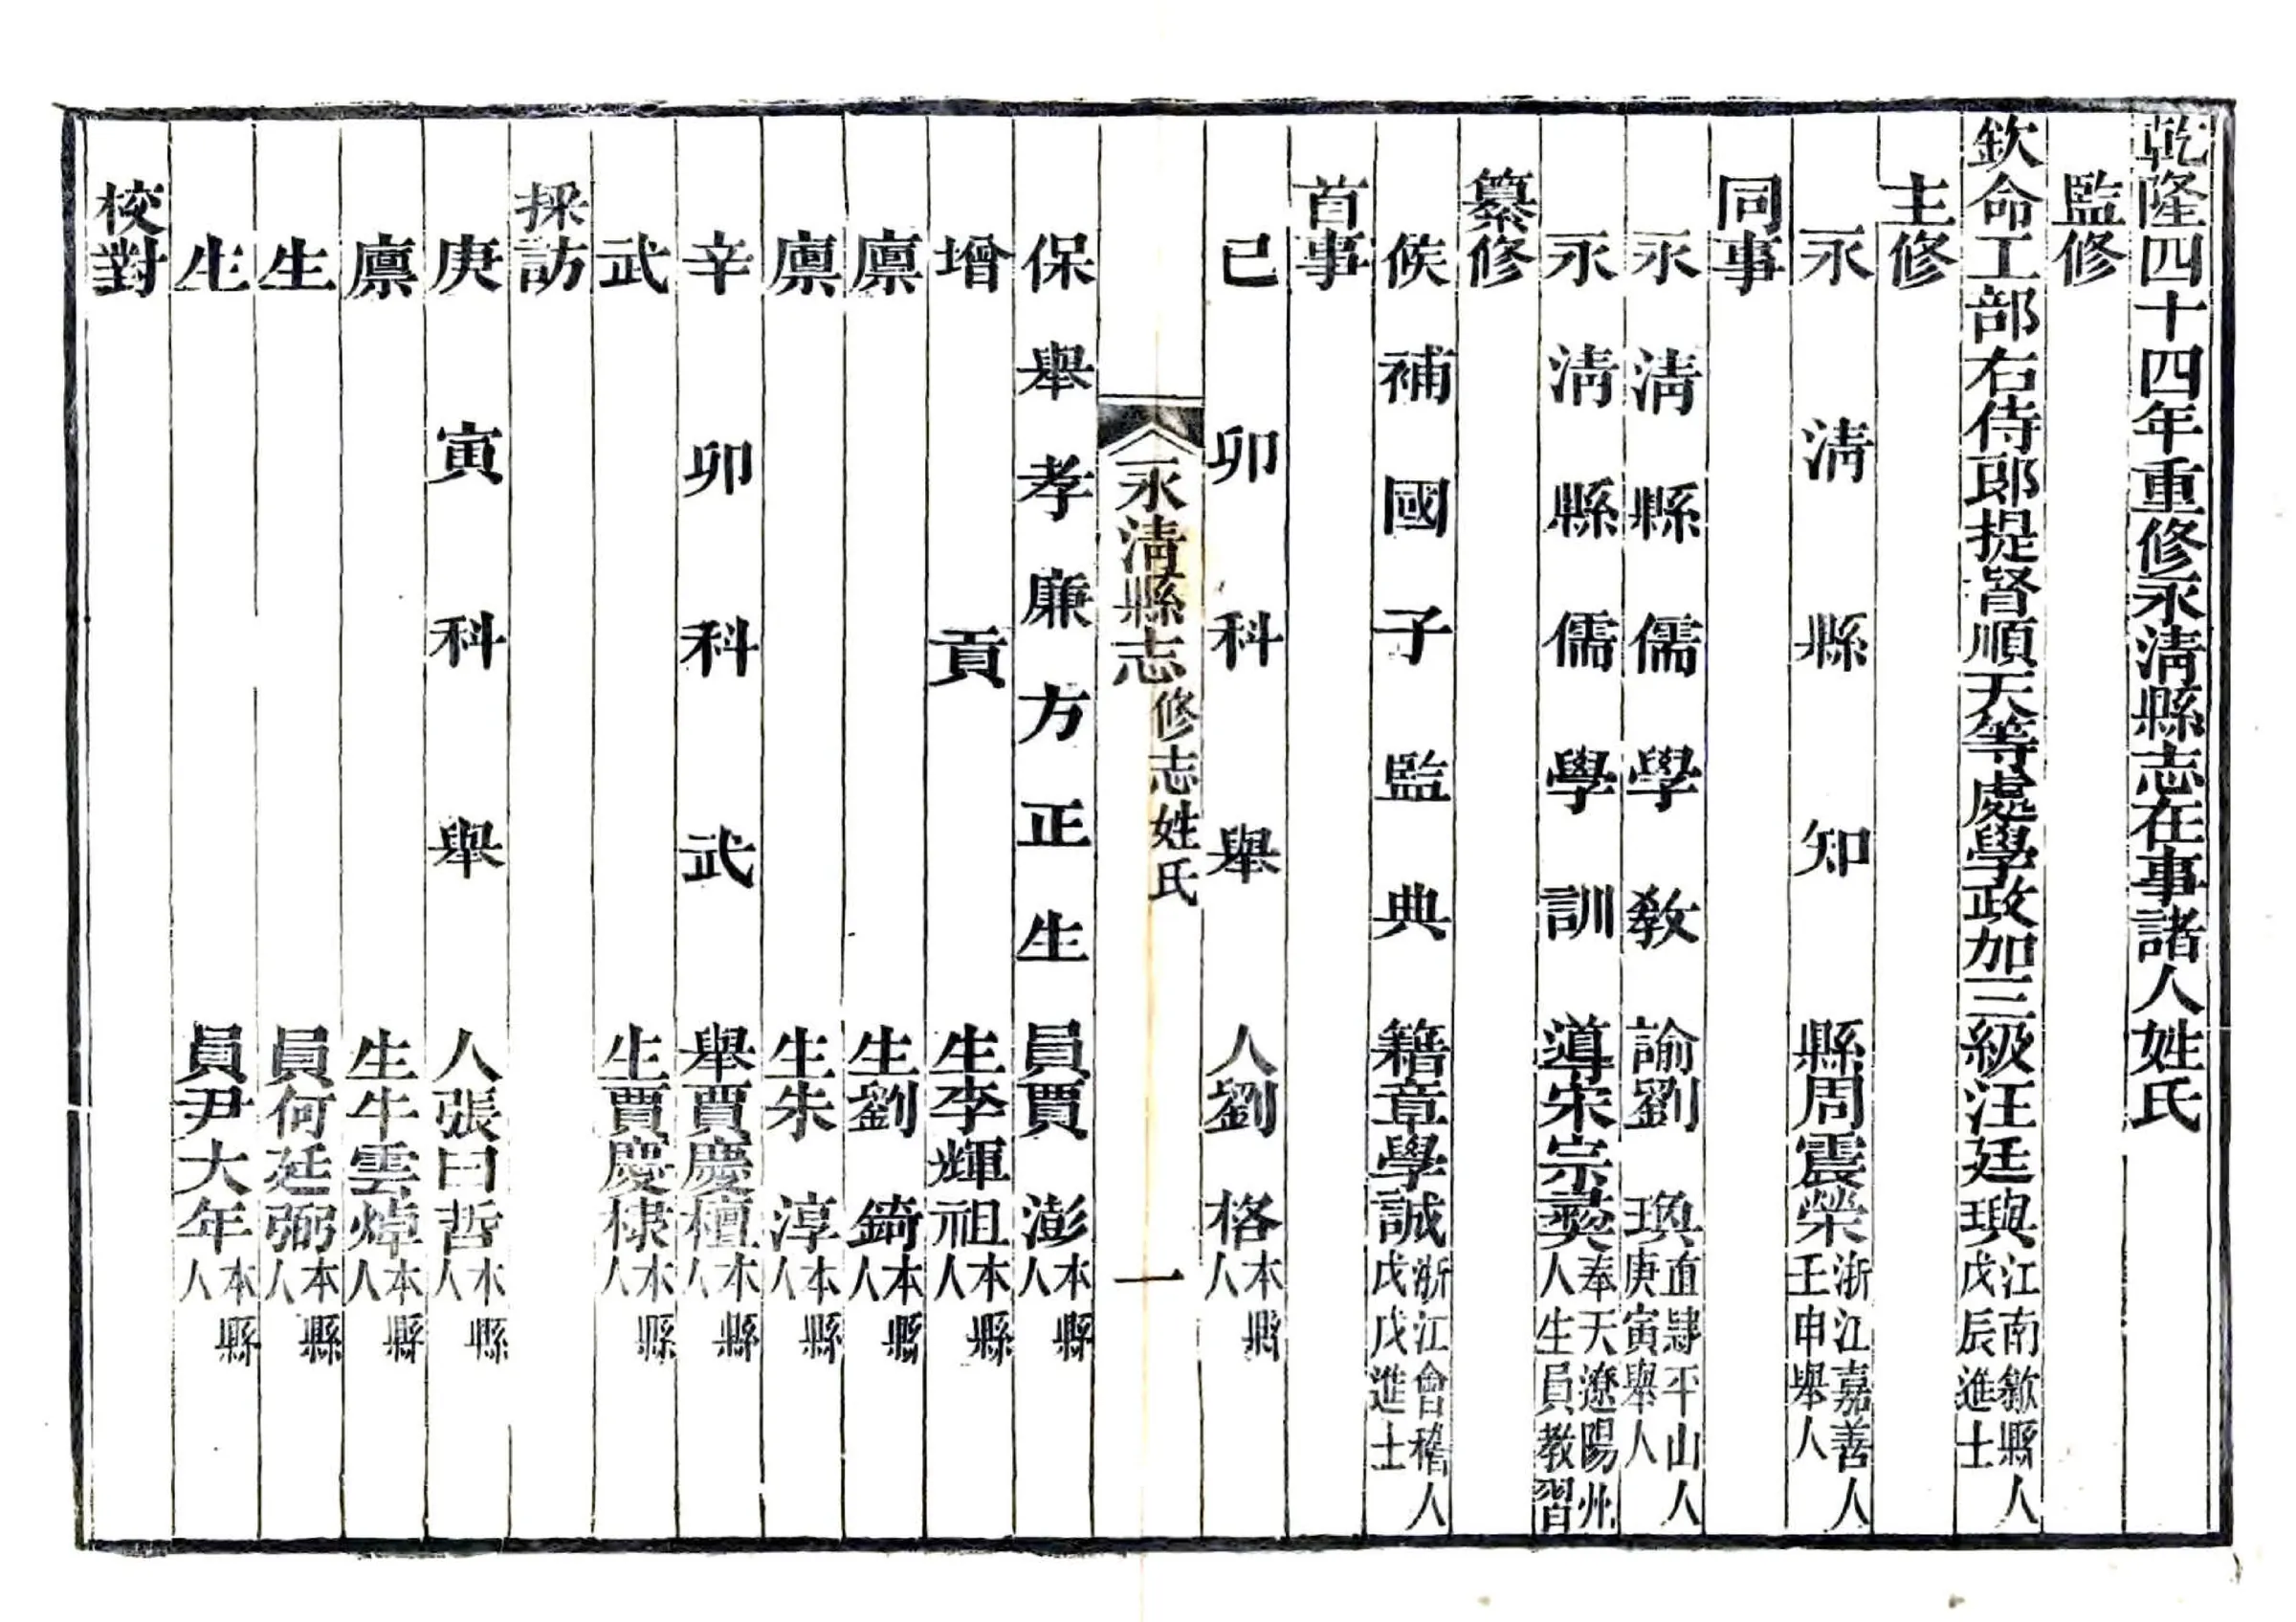 乾隆四十四年重修永淸縣志在事諸人姓氏
監修
欽命工部右侍郎提督順天等處學政加三級汪廷璵江南歙縣人戊辰進士
主修
永淸縣知縣周震榮浙江嘉善人壬申舉人
同事
永淸縣儒學敎諭劉瑍直隷平山人庚寅舉人
永淸縣儒學訓導宋宗彛奉天遼陽州人生員教習
纂修
候補國子監典籍章學誠浙江會稽人戊戌進士
首事
己卯科舉人劉格本縣人
永淸縣志 修志姓氏 一
保舉孝廉方正生員賈澎本縣人
增貢生李輝祖本縣人
廩生劉錡本縣人
廩生朱淳本縣人
辛卯科武舉賈慶檀本縣人
武生賈慶棣本縣人
採訪
庚寅科舉人張曰哲本縣人
廩生牛雲焯本縣人
生員何廷弼本縣人
生員尹大年本縣人
校對